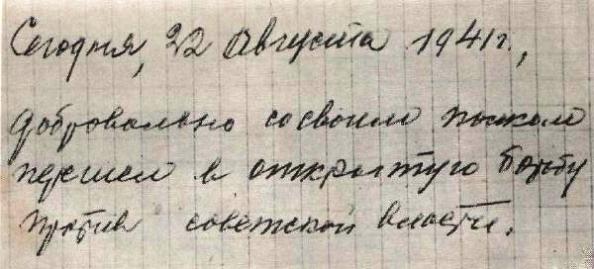 Сегодня, 22 Августа 1941 г.,
добровольно со своим полком
перешел в открытую борьбу
против советской власти.